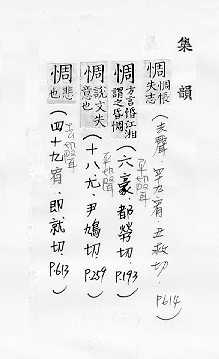 集韻
惆 惆悵失志 (去聲 四十九宥·丑救切·P.614)
惆 方言惛江湘謂之惛惆 (平聲 六豪·都勞切·P.193)
惆 說文失意也 (平聲 十八尤·尹鳩切·P.259)
惆 悲也 (去聲 四十九宥·即就切·P.613)